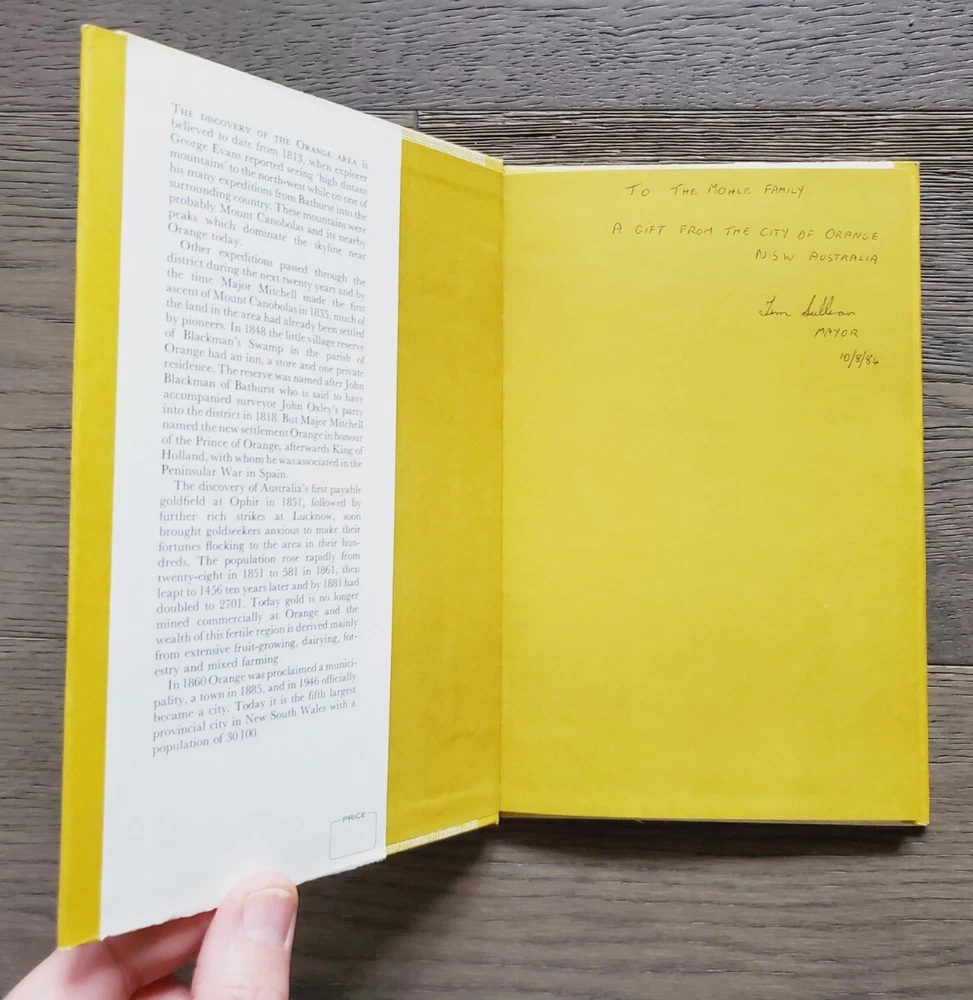 THE DISCOVERY OF THE ORANGE AREA is
believed to date from 1813, when explorer
George Evans reported seeing 'high distant
mountains' to the north-west while on one of
his many expeditions from Bathurst into the
surrounding country. These mountains were
probably Mount Canobolas and its nearby
peaks which dominate the skyline near
Orange today.
Other expeditions passed through the
district during the next twenty years and by
the time Major Mitchell made the first
ascent of Mount Canobolas in 1835, much of
the land in the area had already been settled
by pioneers. In 1848 the little village reserve
of Blackman's Swamp in the parish of
Orange had an inn, a store and one private
residence. The reserve was named after John
Blackman of Bathurst who is said to have
accompanied surveyor John Oxley's party
into the district in 1818. But Major Mitchell
named the new settlement Orange in honour
of the Prince of Orange, afterwards King of
Holland, with whom he was associated in the
Peninsular War in Spain.
The discovery of Australia's first payable
goldfield at Ophir in 1851, followed by
further rich strikes at Lucknow, soon
brought goldseekers anxious to make their
fortunes flocking to the area in their hun-
dreds. The population rose rapidly from
twenty-eight in 1851 to 581 in 1861, then
leapt to 1456 ten years later and by 1881 had
doubled to 2701. Today gold is no longer
mined commercially at Orange and the
wealth of this fertile region is derived mainly
from extensive fruit-growing, dairying, for-
estry and mixed farming.
In 1860 Orange was proclaimed a munici-
pality, a town in 1885, and in 1946 officially
became a city. Today it is the fifth largest
provincial city in New South Wales with a
population of 30 100.
PRICE
TO THE MOHLE FAMILY
A GIFT FROM THE CITY OF ORANGE
N.S.W AUSTRALIA
Tim Sullivan
MAYOR
10/8/84